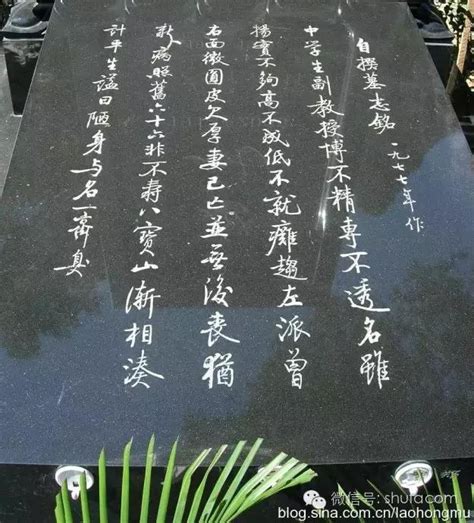 自撰墓志銘 一九七七年作
中学生副教授博不精專不透名雖
揚實不夠高不成低不就癱趨左派曾
右面微圓皮欠厚妻已亡並無後喪猶
新病照舊六十六非不寿八寶山漸相湊
計平生謚曰陋身与名一齊臭
微信号: shufacom
blog.sina.com.cn/laohongmu